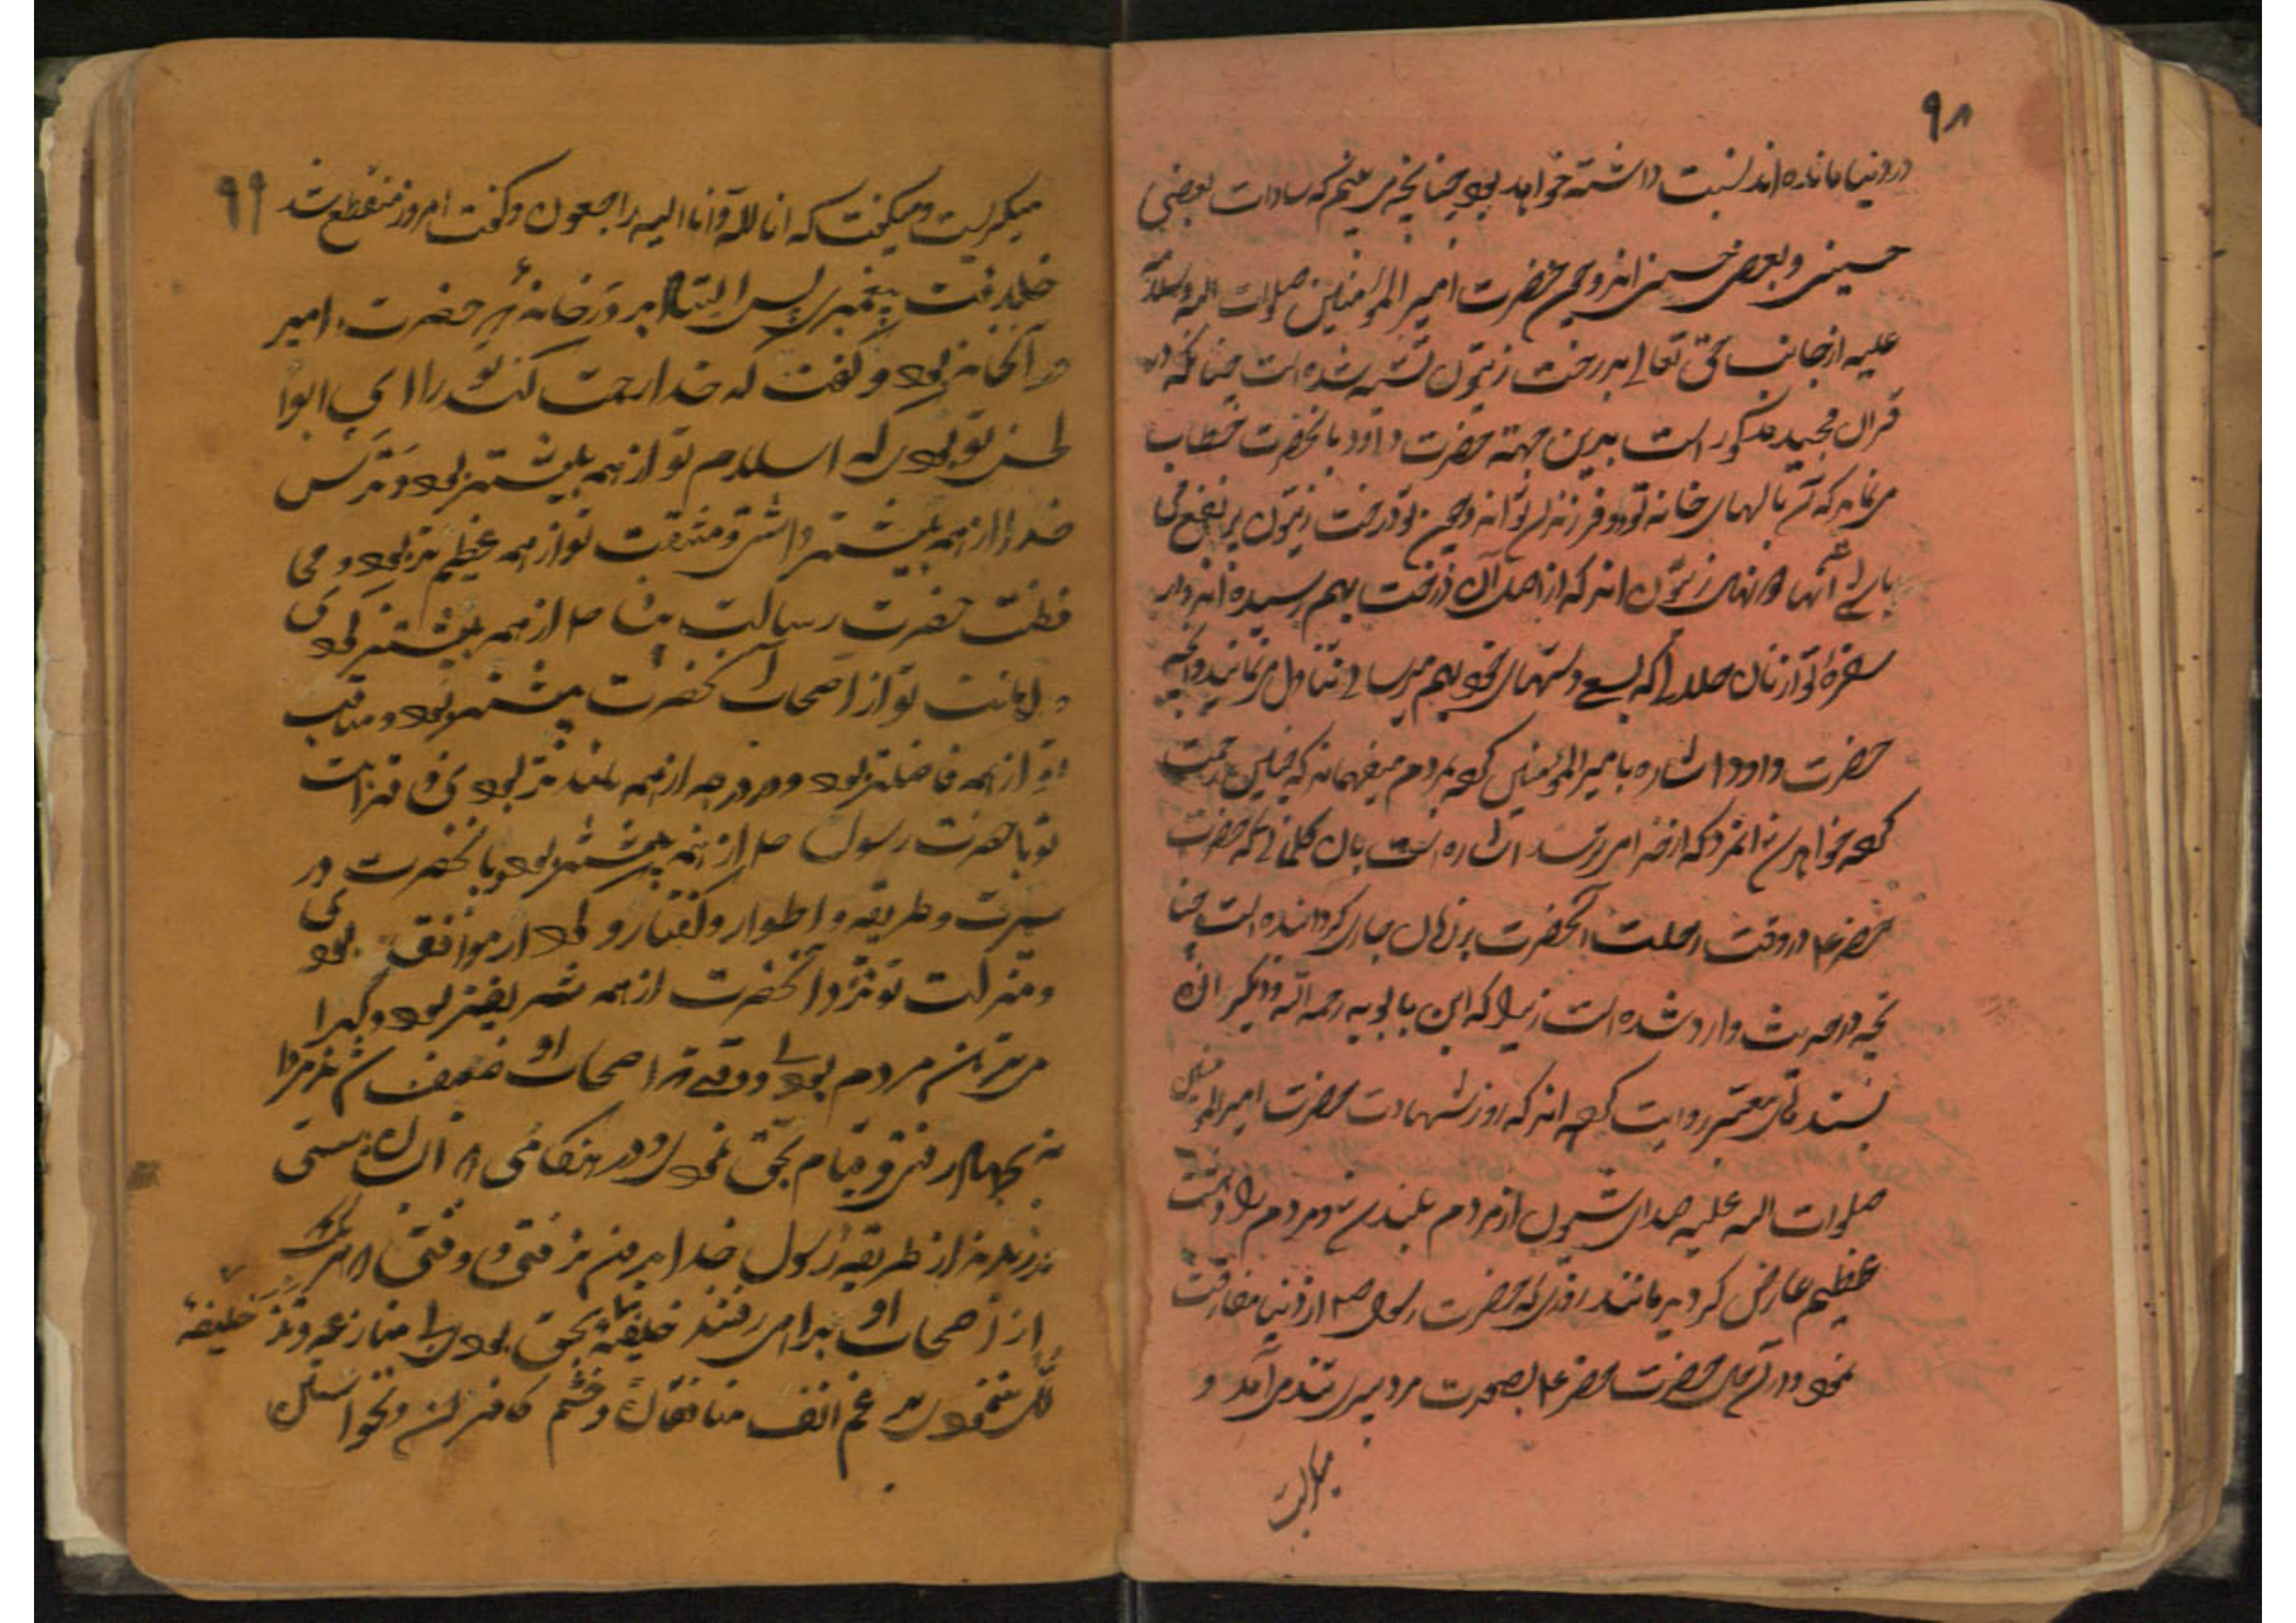 ۹۸
در دنیا مانده اند نسبت داشته خواهد بود چنانچه می بینم که سادات بعضی
حسینی و بعضی حسنی اند و چون حضرت امیر المؤمنین صلوات الله و سلامه
علیه از جانب حق تعالی بدرخت زیتون تشبیه شده است چنانکه در
قرآن مجید مذکور است بدین جهته حضرت داود بآنحضرت خطاب
می نماید که آن نالهای خانه تو دو فرزندان تواند و چون تو درخت زیتون پر نفع می
باشی آنها هم نهال زیتون اند که از اصل آن درخت بهم رسیده اند و از
سفره تو از نان حلالی که بسع دستهای خود بهم میرسانی تناول می نمایند و آنچه
حضرت داود اشاره بامیر المؤمنین کرده بمردم میفهماند که چنین رحمت
کرده خواهد شد انمرد که از خدا می ترسد اشاره است بآن کلماتی که حضرت
خضر ع در وقت رحلت آنحضرت بر زبان جاری گردانیده است چنا
نچه در حدیث وارد شده است زیرا که ابن بابویه رحمه الله و دیگران
بسندهای معتبر روایت کرده اند که روز شهادت حضرت امیر المؤمنین
صلوات الله علیه صدای شیون از مردم بلند شد و مردم را دهشت
عظیم عارض گردید مانند روزی که حضرت رسول ص از دنیا مفارقت
نمود و در آن حال حضرت خضر ع بصورت مرد پیری تند می آمد و
میگریست
۹۹
میگریست و میگفت که انا لله و انا الیه راجعون و گفت امروز منقطع شد
خلافت پیغمبری پس ایستاد بر در خانه که حضرت امیر
در آنخانه بود و گفت که خدا رحمت کند تو را ای ابوا
لحسن تو بودی که اسلام تو از همه بیشتر بود و ترس
خدا از همه بیشتر داشتی و مشقت تو از همه عظیم تر بود و محا
فظت حضرت رسالت پناه ص از همه بیشتر کردی
و امانت تو از اصحاب آنحضرت بیشتر بود و مناقب
تو از همه فاضلتر بود و در درجه از همه بلند تر بودی و قرابت
تو با حضرت رسول ص از همه بیشتر بود و بآنحضرت در
سیرت و طریقه و اطوار و گفتار و کردار موافق بودی
و منزلت تو نزد آنحضرت از همه شریفتر بود و گرا
می ترین مردم بودی و وقتی که اصحاب او ضعیف شدند مردا
نه بجهاد رفتی و قیام بحق نمودی و در هنگامی که ایشان سستی
ورزیدند از طریقه رسول خدا بدر نرفتی و وقتی که هر یک
از اصحاب او براهی رفتند خلیفه بحق بودی بی منازعه و نزد خلیفه
گی نمودی بر غم انف منافقان و خشم کافران و نخواستن